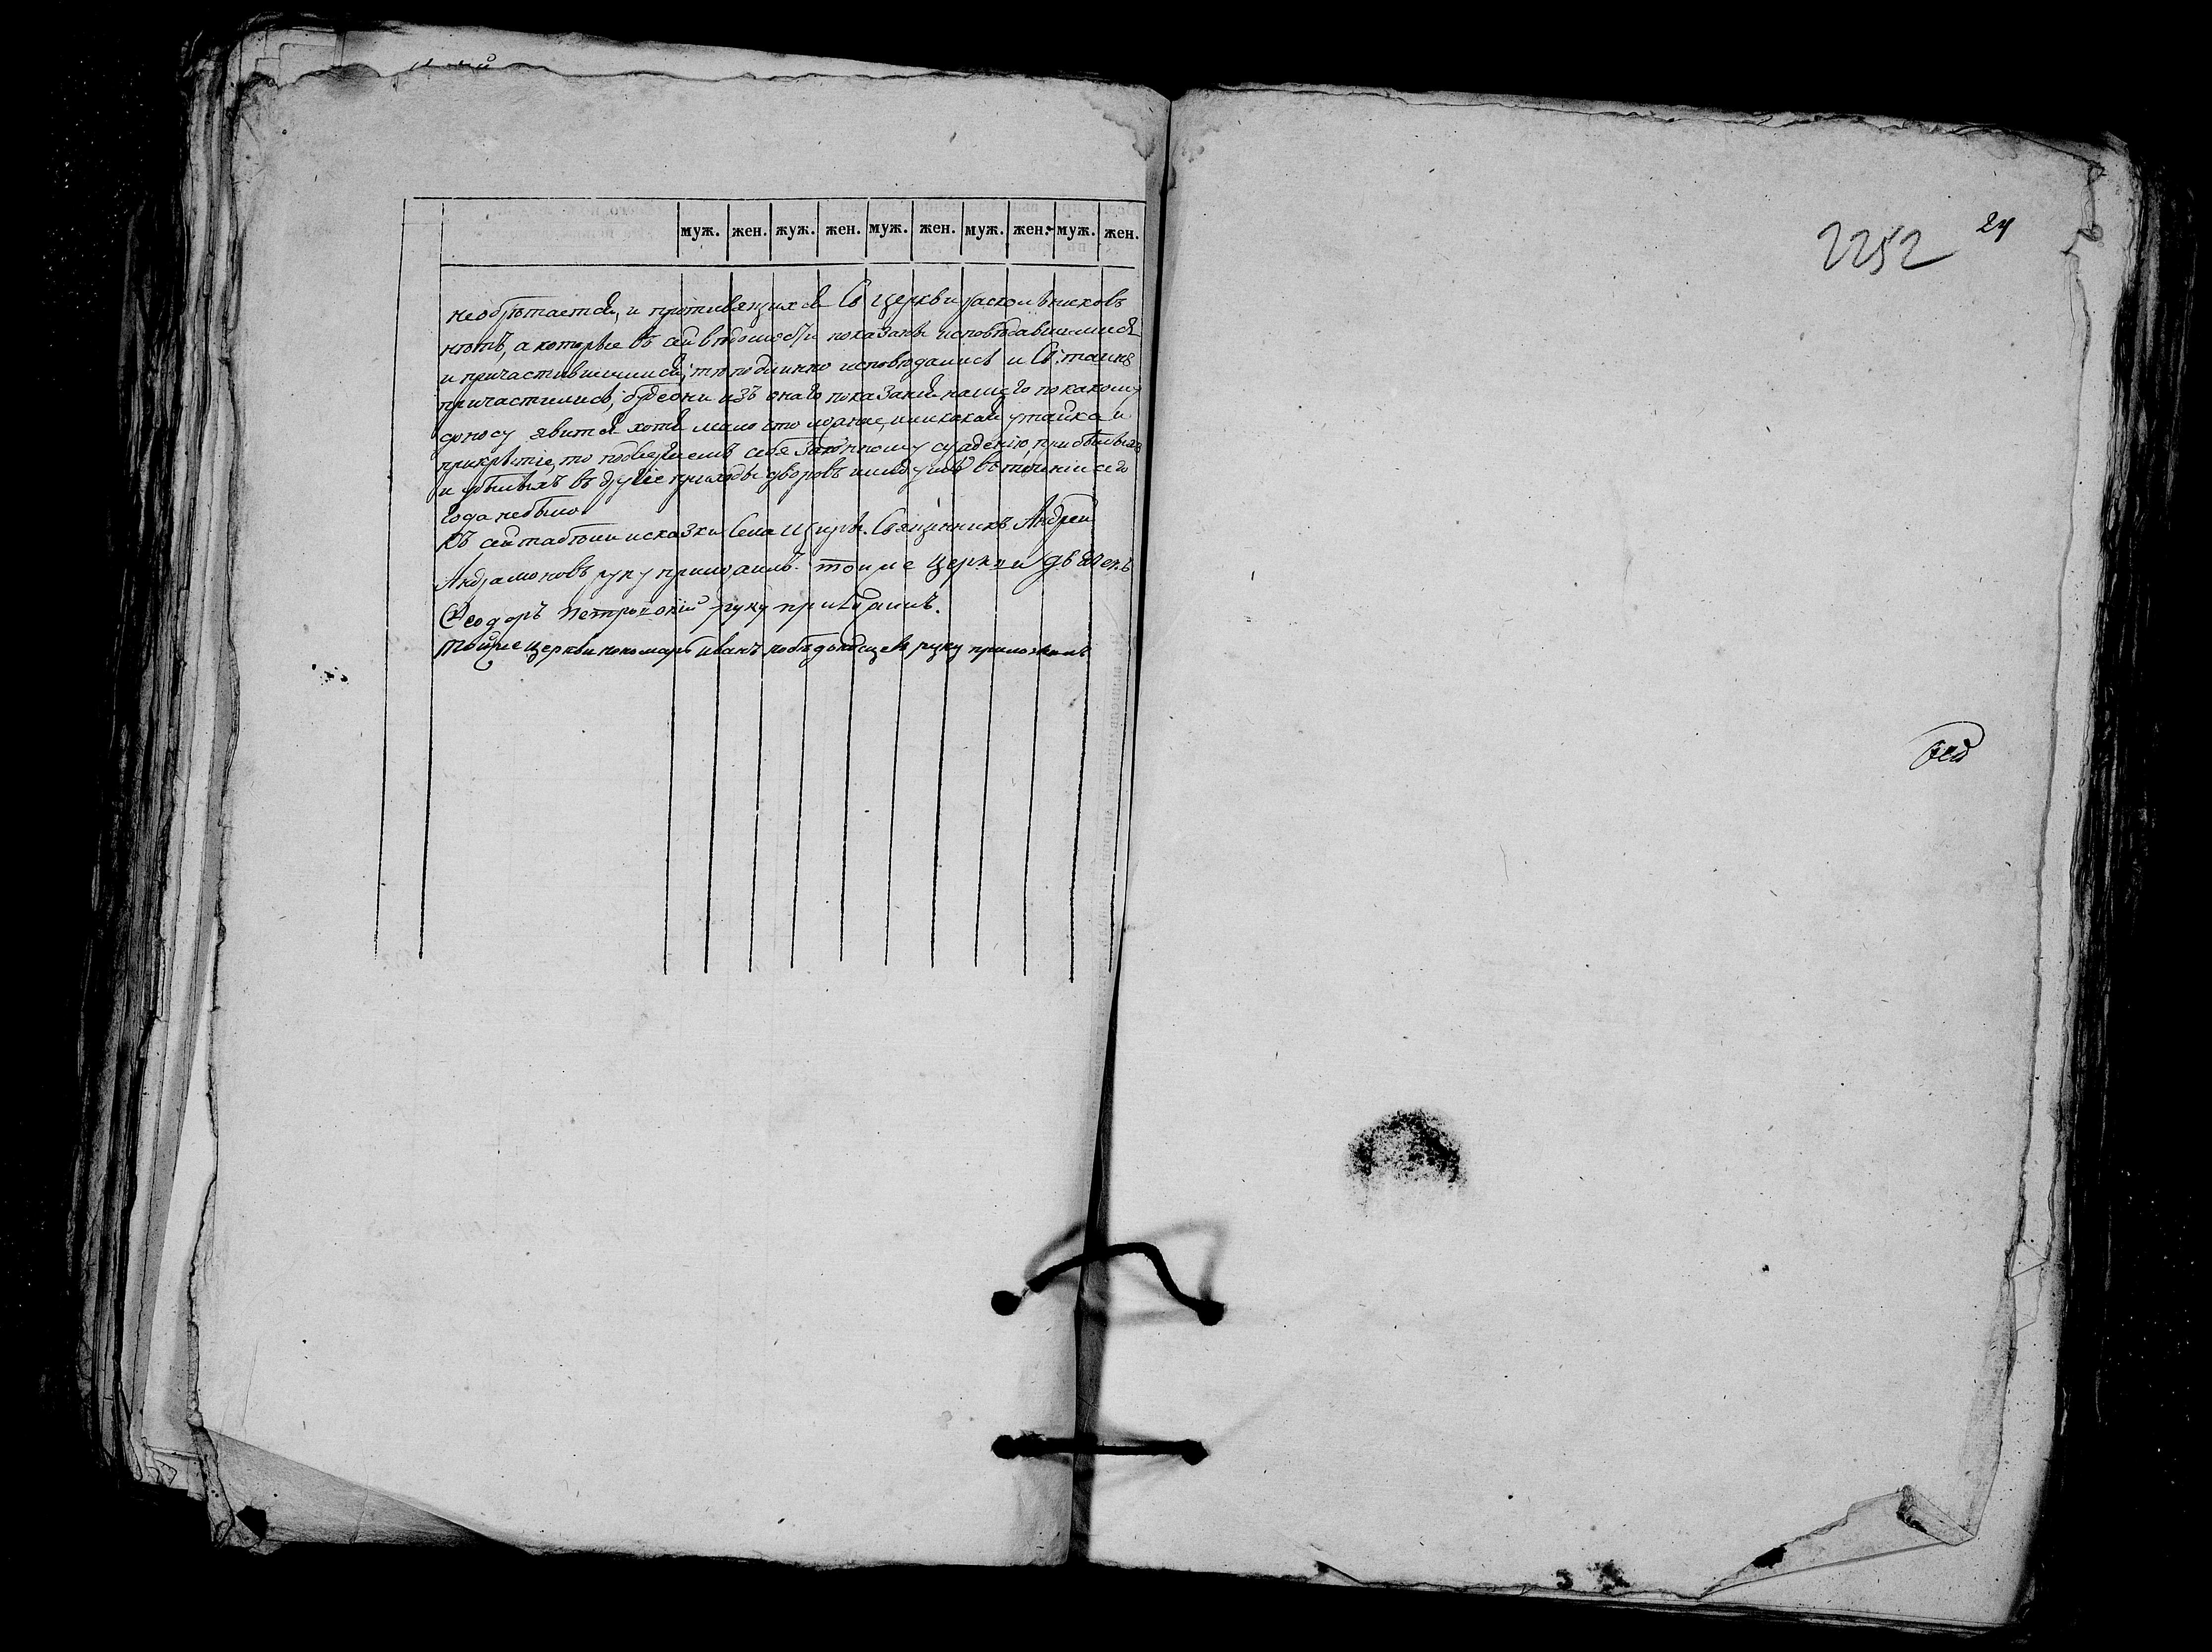 муж. жен. жуж. жен. муж. жен. муж. жен. муж. жен.
необрѣтается, и противящихся Св церкви раскольниковъ
нѣтъ, а которые въ сей вѣдомости показаны исповѣдавшимися
и причастившимися, тѣ подлинно исповѣдались и Св: таинъ
причастились, буде они изъ онаго показанія нашего по какому
доносу явится хотя мало что ложное, или какая утайка и
прикрытіе, то подвергаемъ себя законному сужденію, прибылыхъ
и убылыхъ въ другіе приходы дворовъ и людей въ теченіи сего
года небыло.
Къ сей табели и сказки Села Священникъ Андрей
Андреяновъ руку приложилъ. тойже церкви дьячекъ
Феодоръ Петровскій руку приложилъ.
Тойже церкви пономарь Иванъ Побѣдоносцевъ руку приложилъ
2252 24